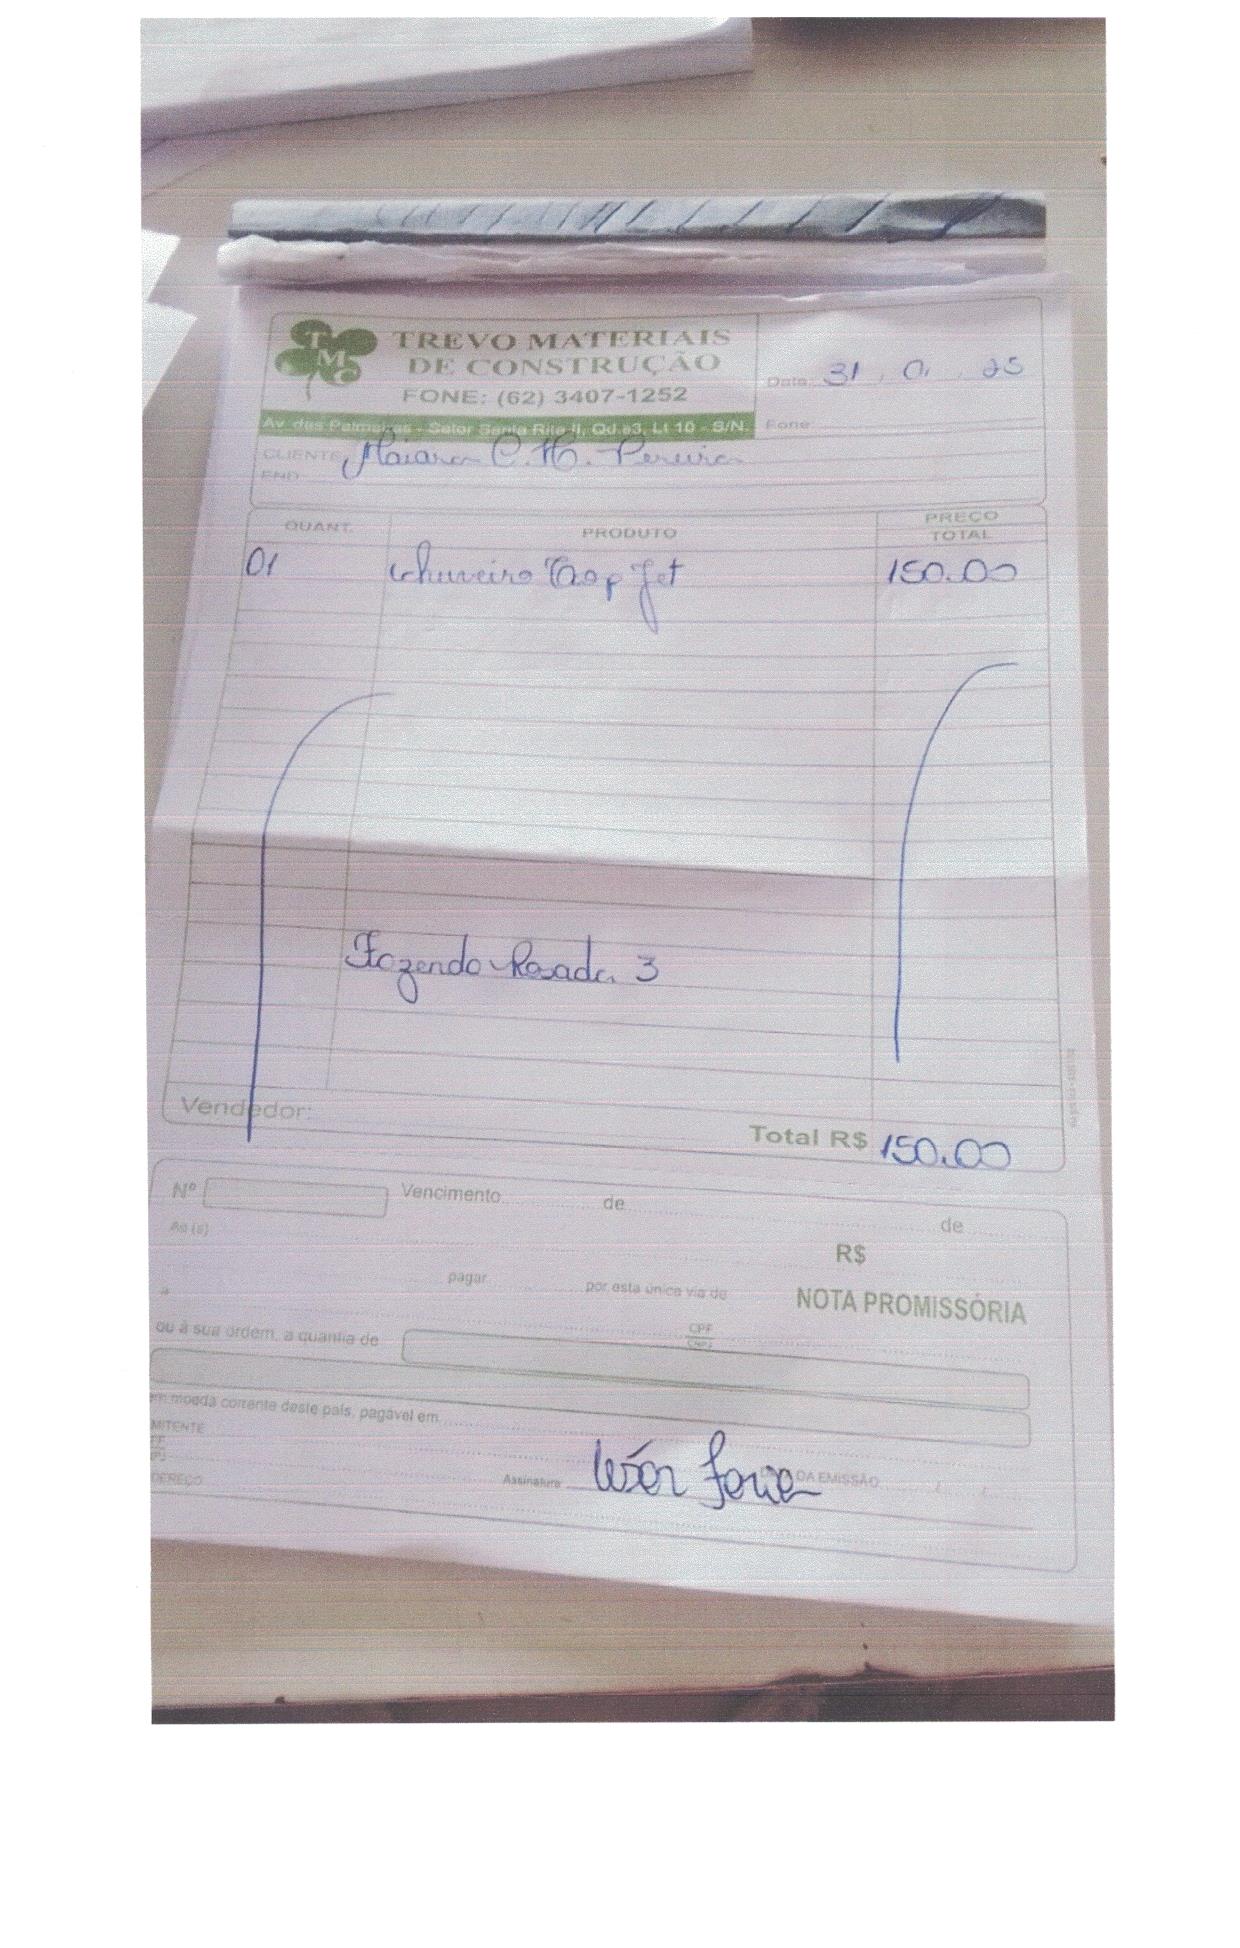 TMC
TREVO MATERIAIS
DE CONSTRUÇÃO
FONE: (62) 3407-1252
Av. das Palmeiras - Setor Santa Rita II, Qd.83, Lt 10 - S/N.
Data: 31 / 01 / 25
Fone:
CLIENTE Maiara C. H. Pereira
END.
QUANT. PRODUTO PREÇO TOTAL
01 chuveiro Top Jet 150.00
Fazenda Rosada 3
Vendedor:
Total R$ 150.00
Nº Vencimento de de
Ao (s) R$
a pagar por esta única via de NOTA PROMISSÓRIA
CPF
CNPJ
ou à sua ordem, a quantia de
em moeda corrente deste país, pagável em
MITENTE
PF
PJ
DEREÇO Assinatura DATA DA EMISSÃO / /